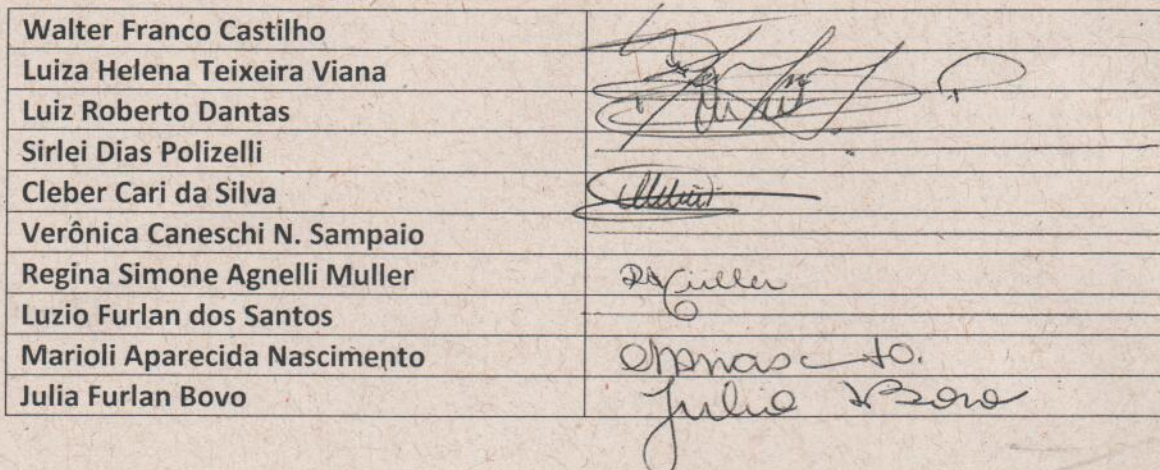 Walter Franco Castilho
Luiza Helena Teixeira Viana
Luiz Roberto Dantas
Sirlei Dias Polizelli
Cleber Cari da Silva
Verônica Caneschi N. Sampaio
Regina Simone Agnelli Muller
Luzio Furlan dos Santos
Marioli Aparecida Nascimento
Julia Furlan Bovo Julia Bovo